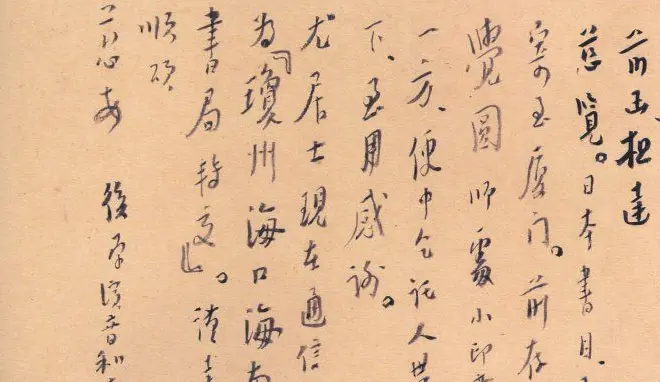 前函想達
慈覽。日本書目，
寄至廈门。前存
覺圓师處小印
一方，便中乞託人
下，至用感谢。
尤居士現在通信
为「瓊州海口海南
書局轉交」。请
順頌
慈安
後学演音和